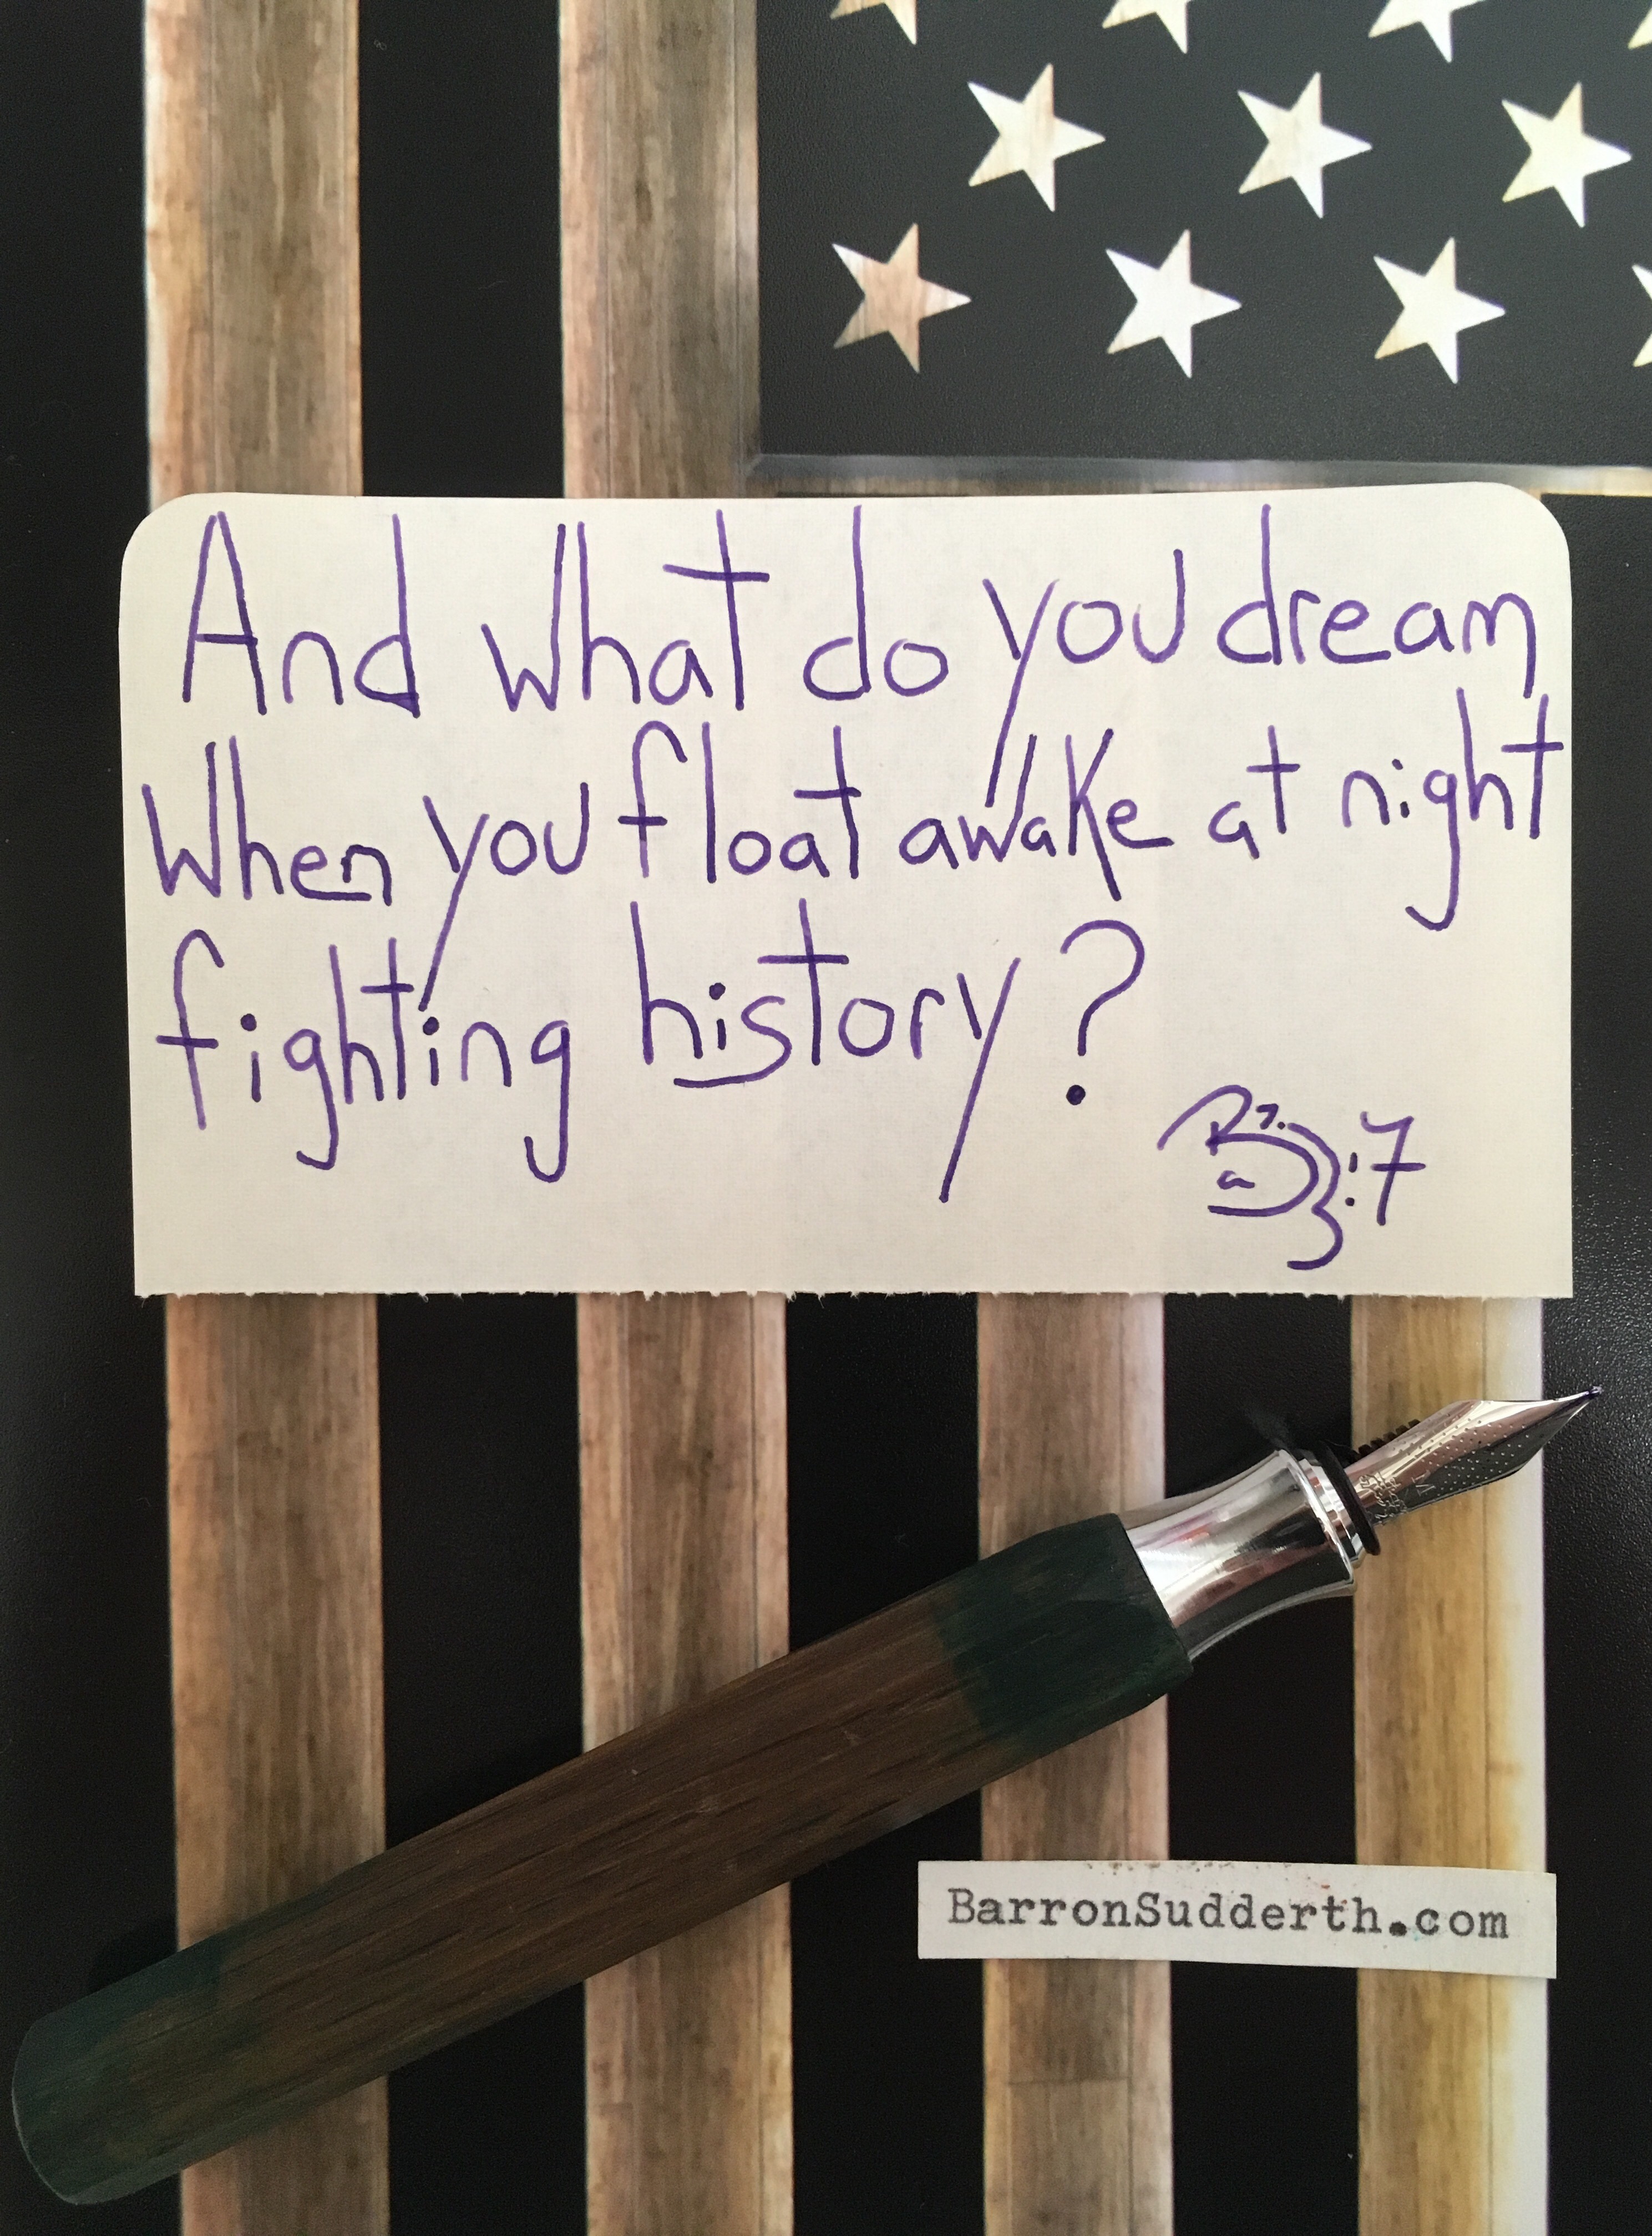 And what do you dream
When you float awake at night
fighting history?
BarronSudderth.com